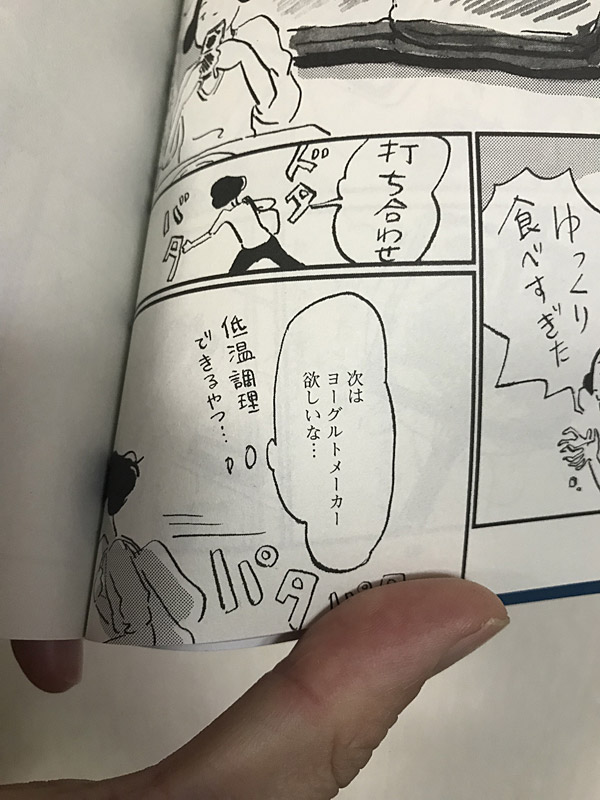 ゆっくり
食べすぎた
打ち合わせ
ドタ
バタ
次は
ヨーグルトメーカー
欲しいな…
低温調理
できるやつ…
パタ